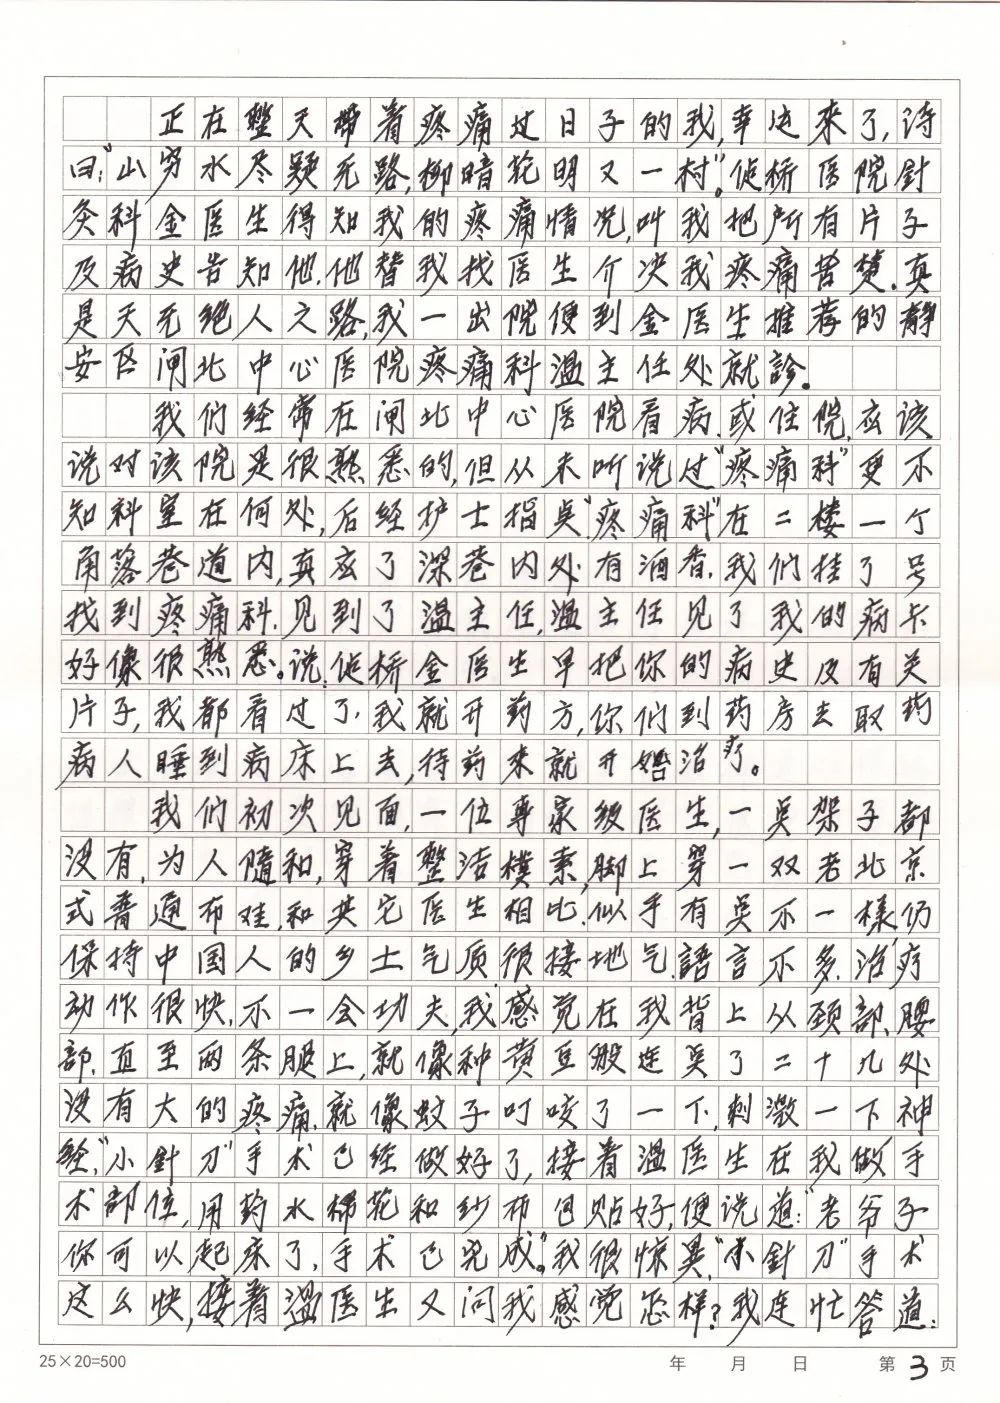 正在整天带着疼痛过日子的我,幸运来了,诗
曰:"山穷水尽疑无路,柳暗花明又一村"。促桥医院針
灸科金医生得知我的疼痛情况,叫我把所有片子
及病史告知他.他替我找医生介决我疼痛苦楚.真
是天无绝人之路,我一出院便到金医生推荐的静
安区闸北中心医院疼痛科温主任处就診。
我们经常在闸北中心医院看病.或住院,应该
说对该院是很熟悉的,但从未听说过"疼痛科"更不
知科室在何处,后经护士指点"疼痛科"在二楼一个
角落巷道内,真应了深巷内处有酒香.我们挂了号
找到疼痛科.见到了温主任,温主任见了我的病卡
好像很熟悉。说:促桥金医生早把你的病史及有关
片子,我都看过了,我就开药方,你们到药房去取药
病人睡到病床上去,待药来就开始治疗。
我们初次见面,一位专家级医生,一点架子都
没有,为人随和,穿着整洁樸素,脚上穿一双老北京
式普通布鞋,和其它医生相比.似乎有点不一樣仍
保持中国人的乡土气质很接地气.語言不多,治疗
动作很快,不一会功夫,我感觉在我背上从颈部、腰
部、直至两条腿上,就像种黄豆般连点了二十几处
没有大的疼痛.就像蚊子叮咬了一下,刺激一下神
经,"小針刀"手术已经做好了,接着温医生在我做手
术部位,用药水棉花和纱布包贴好,便说道:"老爷子
你可以起床了,手术已完成"。我很惊異,"小針刀"手术
这么快,接着温医生又问我感觉怎样?我连忙答道:
25×20=500 年 月 日 第3页